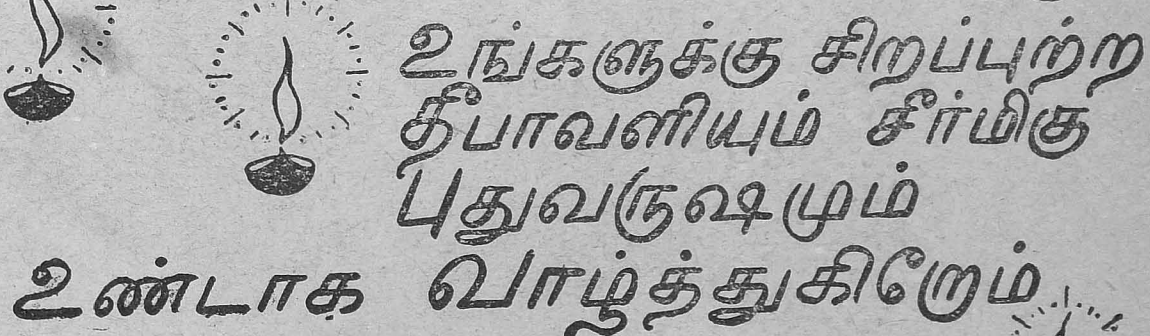 உங்களுக்கு சிறப்புற்ற
தீபாவளியும் சீர்மிகு
புதுவருஷமும்
உண்டாக வாழ்த்துகிறோம்